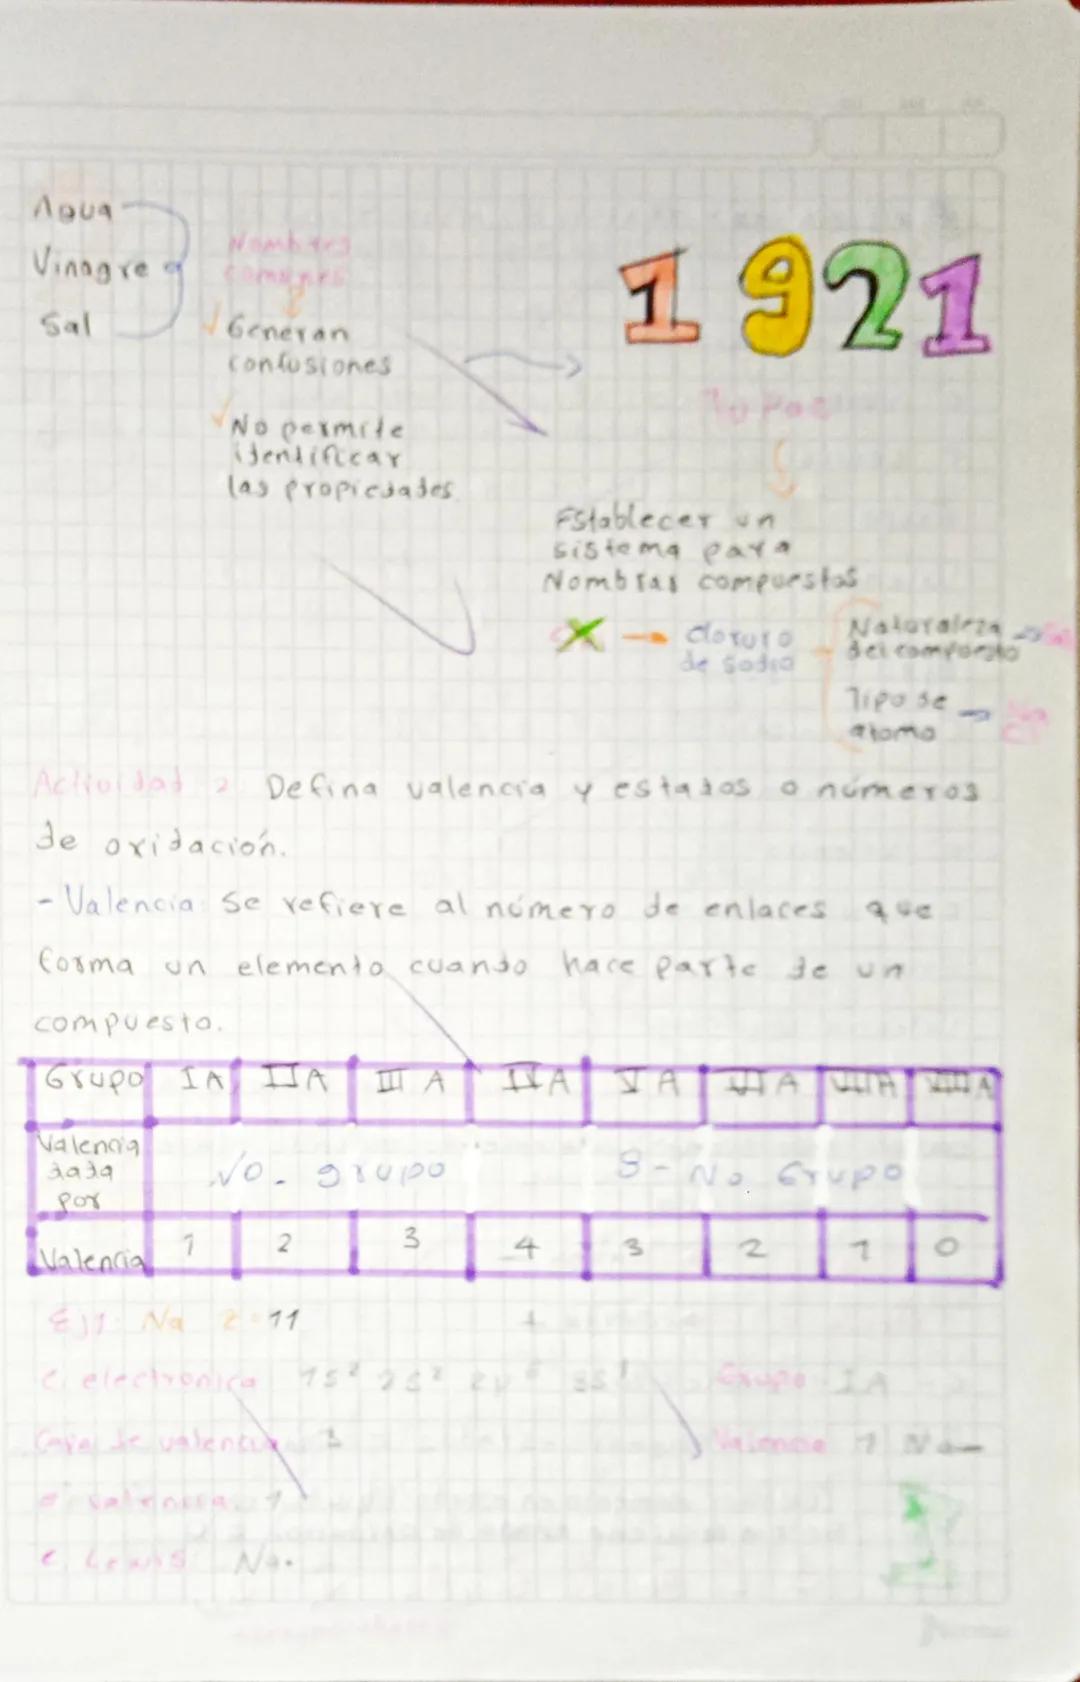 Agua
Vinagre
Sal
Nombres
comunes
Generan
confusiones
No permite
identificar
las propiedades
1921
IUPAC
Establecer un
sistema para
Nombrar compuestos
cloruro
de sodio
Naturaleza
del compuesto
Sal
Tipo de
atomo
Na
Cl
Actividad 2 Defina valencia y estados o números
de oxidación.
- Valencia: Se refiere al número de enlaces que
forma un elemento cuando hace parte de un
compuesto.
Grupo IA IIA III A IVA VA VIA VIIA VIIIA
Valencia
dada
por
No. grupo 8 - No. Grupo
Valencia 1 2 3 4 3 2 1 0
Ej1: Na Z=11
c. electronica 1s² 2s² 2p⁶ 3s¹ Grupo IA
Capa de valencia 3 Valencia 1 Na—
e⁻ valencia 1
e. Lewis Na.